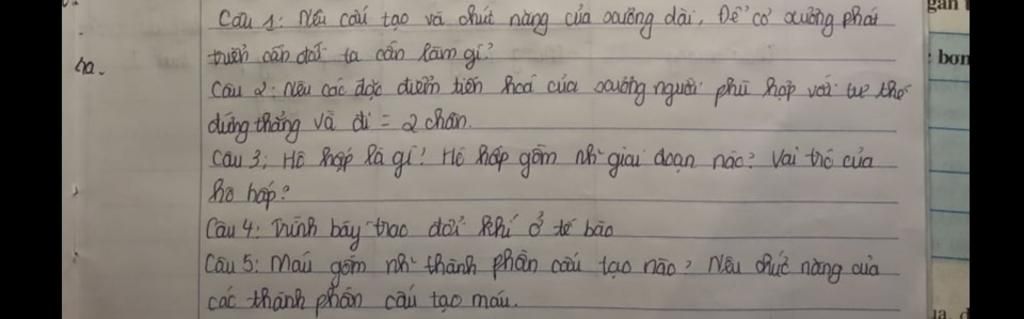 Câu 1: Nêu cấu tạo và chức năng của xương dài, Để cơ xương phát
triển cân đối ta cần làm gì?
Câu 2: Nêu các đặc điểm tiến hoá của xương người phù hợp với tư thế
đứng thẳng và đi = 2 chân.
Câu 3: Hô hấp là gì! Hô hấp gồm nh~ giai đoạn nào? Vai trò của
hô hấp?
Câu 4: Trình bày trao đổi khí ở tế bào
Câu 5: Máu gồm nh~ thành phần cấu tạo nào? Nêu chức năng của
các thành phần cấu tạo máu.
gan
bon